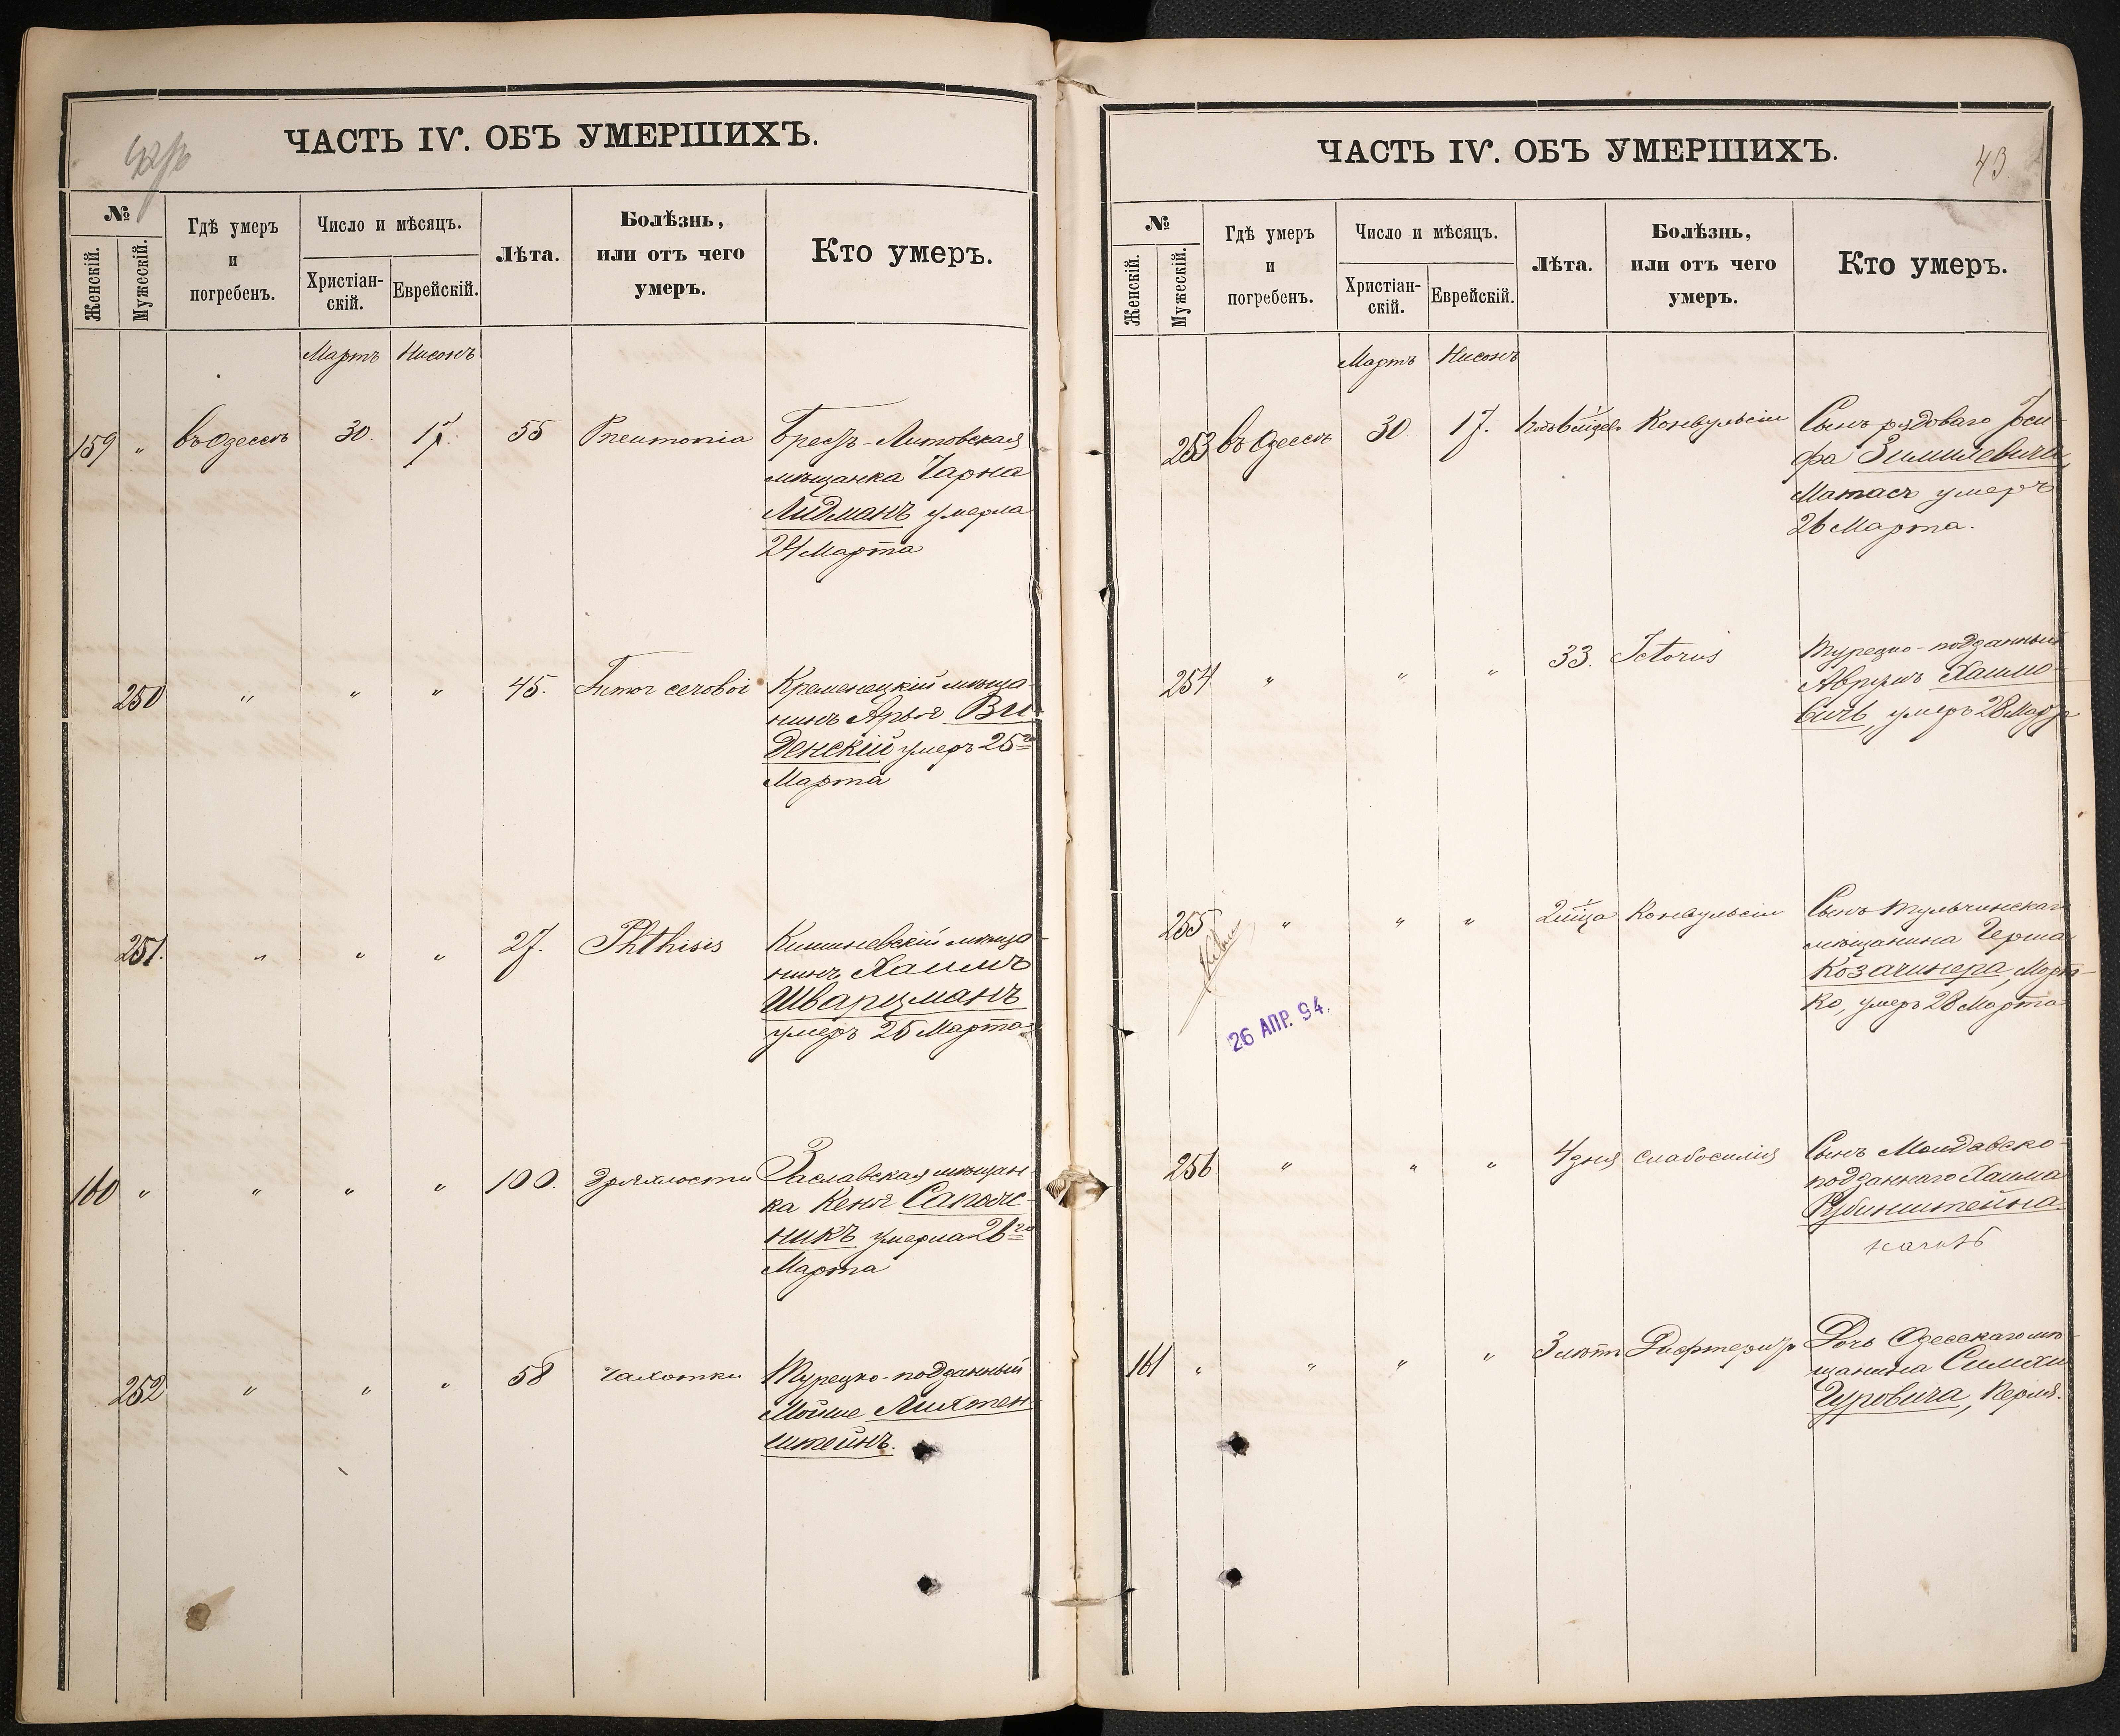 ЧАСТЬ IV. ОБЪ УМЕРШИХЪ.
№
Женскій.
Мужескій.
Гдѣ умеръ
и
погребенъ.
Число и мѣсяцъ.
Христіан-
скій.
Еврейскій.
Лѣта.
Болѣзнь,
или отъ чего
умеръ.
Кто умеръ.
Мартъ Нисонъ
159 " въ Одессѣ 30. 17. 55 Pneumonia Брестъ-Литовская
мѣщанка Чарна
Лидманъ умерла
24 Марта
250 " " " 45. Tumor cerebri Кременецкій мѣща-
нинъ Арья Ви-
денскій умеръ 25го
Марта
251. " " " 27. Phthisis Кишиневскій мѣща-
нинъ Хаимъ
Шварцманъ
умеръ 25 Марта
160 " " " " 100. Дряхлости Заславская мѣщан-
ка Кеня Сапож-
никъ умерла 26го
Марта
252 " " " 58 Чахотки Турецко-подданный
Мойше Лихтен-
штейнъ.
ЧАСТЬ IV. ОБЪ УМЕРШИХЪ.
43.
№
Женскій.
Мужескій.
Гдѣ умеръ
и
погребенъ.
Число и мѣсяцъ.
Христіан-
скій.
Еврейскій.
Лѣта.
Болѣзнь,
или отъ чего
умеръ.
Кто умеръ.
Мартъ Нисонъ
253 въ Одессѣ 30. 17. Конвульсіи Сынъ рядоваго Іоси-
фа Зимилевича,
Матасъ умеръ
26 Марта.
254 " " " 33. Icterus Турецко-подданный
Аврумъ Хаимо-
вичъ, умеръ 28 Мар
255 " " " 2 мѣсца Конвульсіи Сынъ Тульчинскаго
мѣщанина Герша
Козачинера, Морт-
ко, умеръ 28 Марта
26 АПР. 94.
256 " " " 4 дня слабосилія Сынъ Молдавско-
подданнаго Хаима
Рубинштейна.
161 " " " " 3 лѣтъ Дифтеритъ Дочь Одесскаго мѣ-
щанина Симхи
Гуровича, Перля.